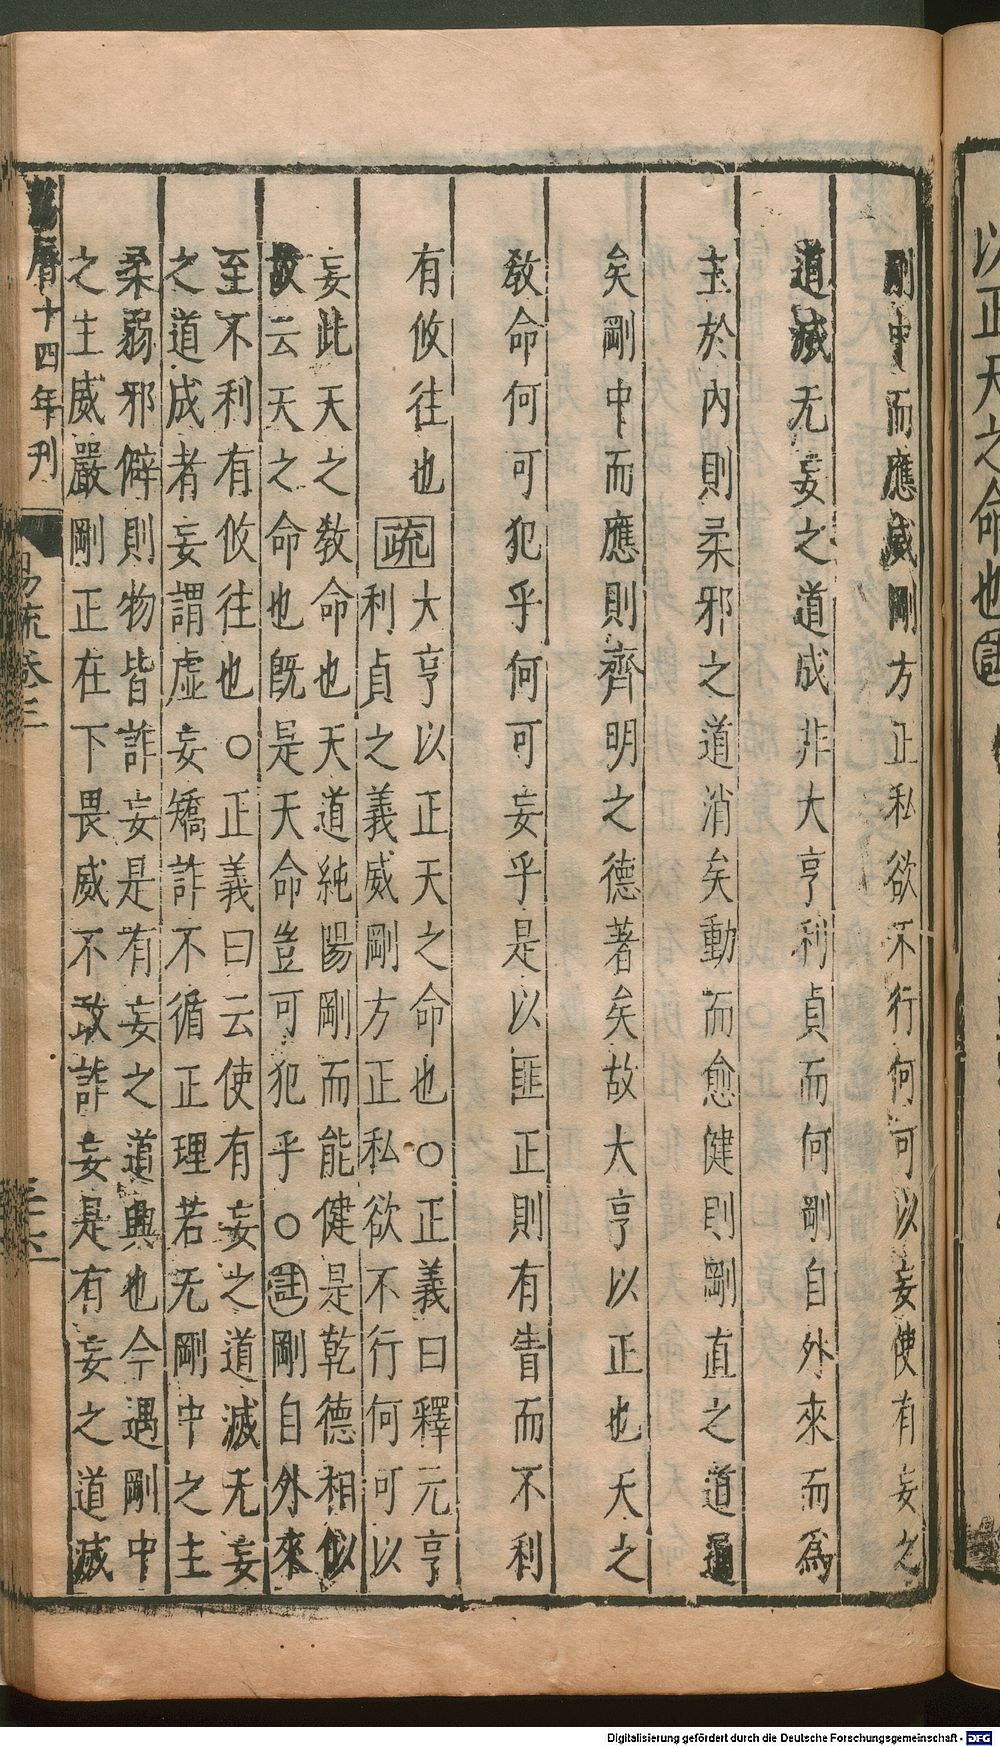 以正天之命也註
剛中而應威剛方正私欲不行何可以妄使有妄之
道滅无妄之道成非大亨利貞而何剛自外來而爲
主於內則柔邪之道消矣動而愈健則剛直之道通
矣剛中而應則齊明之德著矣故大亨以正也天之
教命何可犯乎何可妄乎是以匪正則有眚而不利
有攸往也疏
大亨以正天之命也○正義曰釋元亨
利貞之義威剛方正私欲不行何可以
妄此天之教命也天道純陽剛而能健是乾德相似
故云天之命也既是天命豈可犯乎○註剛自外來
至不利有攸往也○正義曰云使有妄之道滅无妄
之道成者妄謂虛妄矯詐不循正理若无剛中之主
柔弱邪僻則物皆詐妄是有妄之道興也今遇剛中
之主威嚴剛正在下畏威不敢詐妄是有妄之道滅
曆十四年刊
易疏卷三
Digitalisierung gefördert durch die Deutsche Forschungsgemeinschaft - DFG